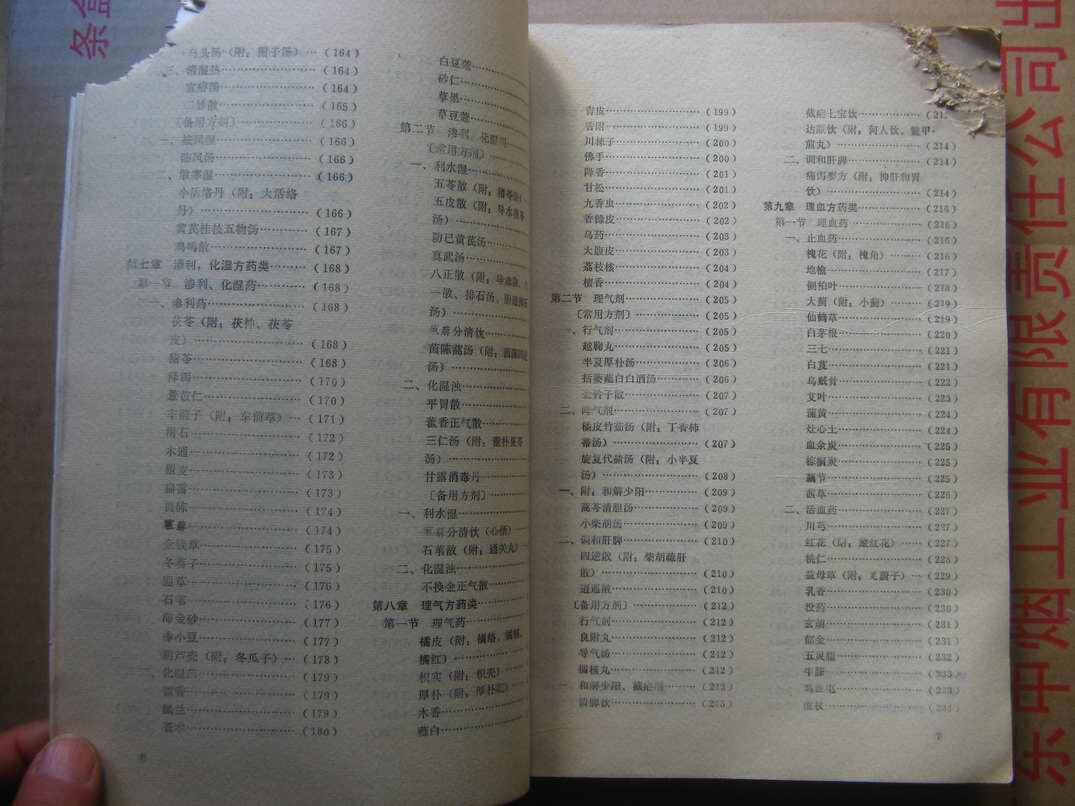 白头汤（附：附子汤）…（164）
二、清湿热……（164）
宣痹汤……（164）
二妙散……（165）
〔备用方剂〕……（166）
一、祛风湿……（166）
防风汤……（166）
二、散寒湿……（166）
小活络丹（附：大活络
丹）……（166）
黄芪桂枝五物汤……（167）
鸡鸣散……（167）
第七章 渗利，化湿方药类……（168）
第一节 渗利、化湿药……（168）
一、渗利药……（168）
茯苓（附：茯神、茯苓
皮）……（168）
猪苓……（168）
泽泻……（170）
薏苡仁……（170）
车前子（附：车前草）…（171）
滑石……（172）
木通……（172）
瞿麦……（173）
萹蓄……（173）
茵陈……（174）
萆薢……（174）
金钱草……（175）
冬葵子……（175）
通草……（176）
石苇……（176）
海金砂……（177）
赤小豆……（177）
葫芦壳（附：冬瓜子）…（178）
二、化湿药……（179）
藿香……（179）
佩兰……（179）
苍术……（180）
白豆蔻……
砂仁……
草果……
草豆蔻……
第二节 渗利，化湿剂……
〔常用方剂〕……
一、利水湿……
五苓散（附：猪苓汤）
五皮散（附：导水茯苓
汤）……
防己黄芪汤……
真武汤……
八正散（附：导赤散、
一散、排石汤、
汤）……
萆薢分清饮……
茵陈蒿汤（附：
汤）……
二、化湿浊……
平胃散……
藿香正气散……
三仁汤（附：藿朴夏苓
汤）……
甘露消毒丹……
〔备用方剂〕……
一、利水湿……
萆薢分清饮（心悟）
石苇散（附：通关丸）
二、化湿浊……
不换金正气散……
第八章 理气方药类……
第一节 理气药……
橘皮（附：橘络、橘核、
橘红）……
枳实（附：枳壳）
厚朴（附：厚朴花）
木香……
薤白……
青皮……（199）
香附……（199）
川楝子……（200）
佛手……（200）
降香……（201）
甘松……（201）
九香虫……（202）
香橼皮……（202）
乌药……（203）
大腹皮……（203）
荔枝核……（204）
檀香……（204）
第二节 理气剂……（205）
〔常用方剂〕……（205）
一、行气剂……（205）
越鞠丸……（205）
半夏厚朴汤……（206）
括蒌薤白白酒汤……（206）
金铃子散……（207）
二、降气剂……（207）
橘皮竹茹汤（附：丁香柿
蒂汤）……（207）
旋复代赭汤（附：小半夏
汤）……（208）
一、附：和解少阳……（209）
蒿芩清胆汤……（209）
小柴胡汤……（209）
二、调和肝脾……（210）
四逆散（附：柴胡疏肝
散）……（210）
逍遥散……（210）
〔备用方剂〕……（212）
行气剂……（212）
良附丸……（212）
导气汤……（212）
橘核丸……（212）
一、和解少阳、截疟剂……（213）
清脾饮……（213）
截疟七宝饮……
达原饮（附：何人饮、鳖甲
煎丸）……（214）
二、调和肝脾……（214）
痛泻要方（附：抑肝和胃
饮）……（214）
第九章 理血方药类……（216）
第一节 理血药……（216）
一、止血药……（216）
槐花（附：槐角）……（216）
地榆……（217）
侧柏叶……（218）
大蓟（附：小蓟）……（219）
仙鹤草……（219）
白茅根……（220）
三七……（221）
白芨……（221）
乌贼骨……（222）
艾叶……（223）
蒲黄……（224）
灶心土……（224）
血余炭……（225）
棕榈炭……（225）
藕节……（225）
茜草……（226）
二、活血药……（227）
川芎……（227）
红花（附：藏红花）……（227）
桃仁……（228）
益母草（附：茺蔚子）…（229）
乳香……（230）
没药……（230）
玄胡……（231）
郁金……（231）
五灵脂……（232）
牛膝……（233）
鸡血屯……（233）
莪术……（234）
6
7
条盒
东中烟工业有限责任公司出